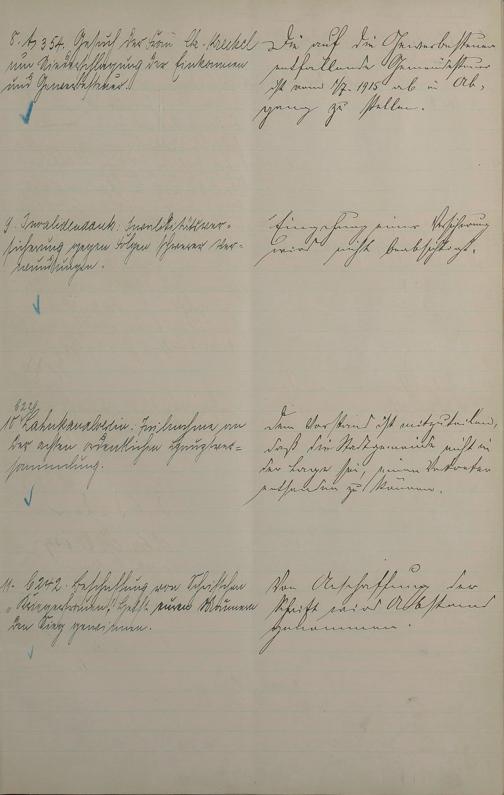 8. A 354. Gesuch der Frau Chr. Kreckel
um Niederschlagung der Einkommen
und Gewerbesteuer.
Die auf die Gewerbesteuer
entfallende Gemeindesteuer
ist vom 1/7. 1915 ab in Ab-
gang zu stellen.
9. Invalidendank: Invaliditätsver-
sicherung gegen Folgen schwerer Ver-
wundungen.
Eingehung einer Versicherung
wird nicht beabsichtigt.
10 Lahnkanalverein: Teilnahme an
der ersten ordentlichen Hauptver-
sammlung.
Dem Vorstand ist mitzuteilen,
daß die Stadtgemeinde nicht in
der Lage sei, einen Vertreter
entsenden zu können.
11. 6242. Beschaffung von Schriftchen
den Krieg gewinnen.
Von Anschaffung der
Schrift wird Abstand
genommen.